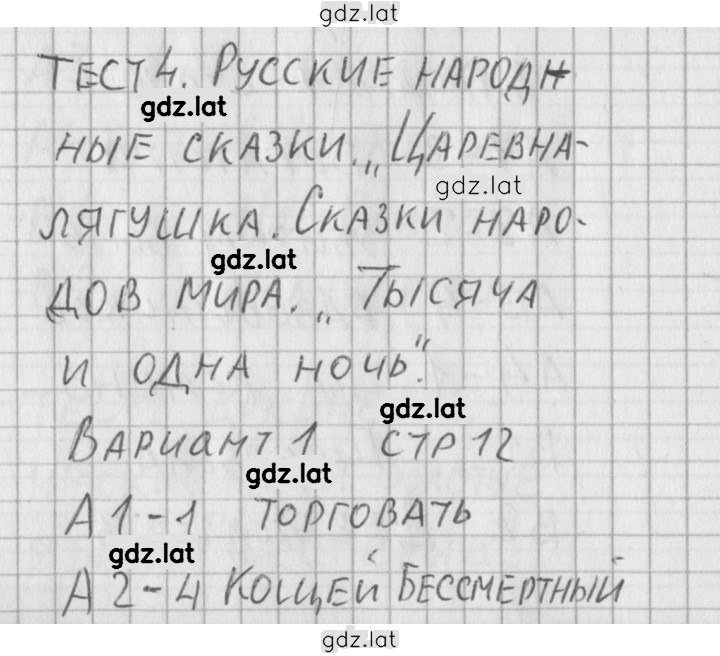 gdz.lat
ТЕСТ 4. РУССКИЕ НАРОДН
gdz.lat
НЫЕ СКАЗКИ. „ЦАРЕВНА-
gdz.lat
ЛЯГУШКА. СКАЗКИ НАРО-
gdz.lat
ДОВ МИРА. „ТЫСЯЧА
И ОДНА НОЧЬ".
gdz.lat
ВАРИАНТ 1 СТР 12
gdz.lat
А1-1 ТОРГОВАТЬ
gdz.lat
А2-4 КОЩЕЙ БЕССМЕРТНЫЙ
gdz.lat